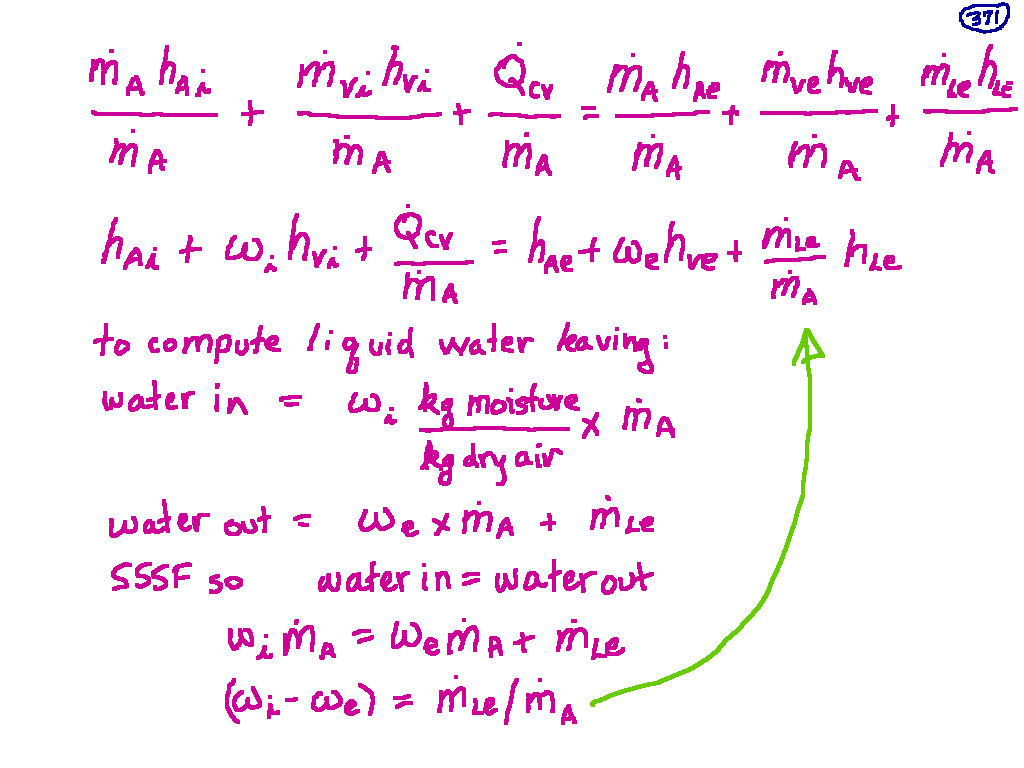 371
ṁ_A h_Ai / ṁ_A + ṁ_vi h_vi / ṁ_A + Q̇_cv / ṁ_A = ṁ_A h_Ae / ṁ_A + ṁ_ve h_ve / ṁ_A + ṁ_Le h_Le / ṁ_A
h_Ai + ω_i h_vi + Q̇_cv / ṁ_A = h_Ae + ω_e h_ve + ṁ_Le / ṁ_A h_Le
to compute liquid water leaving:
water in = ω_i kg moisture / kg dry air x ṁ_A
water out = ω_e x ṁ_A + ṁ_Le
SSSF so water in = water out
ω_i ṁ_A = ω_e ṁ_A + ṁ_Le
(ω_i - ω_e) = ṁ_Le / ṁ_A